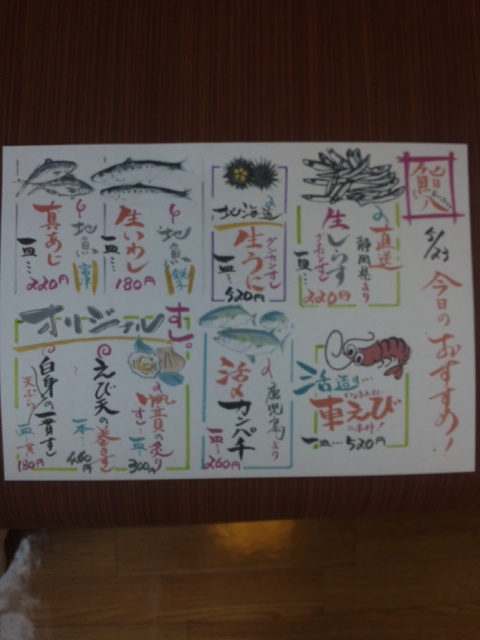 鮨八
5/23
今日のおすすめ!
直送
静岡県より
生しらす
グンカンずし
一皿…220円
北海道の
生うに
グンカンずし
一皿…520円
地魚
生いわし
一皿…180円
地魚
真あじ
一皿…220円
活造り…
車えび
二本付!
一皿…520円
鹿児島より
活〆カンパチ
一皿…260円
オリジナルすし。
帆立貝の炙り
一皿…300円
えび天の巻ずし
一本…460円
白身の一貫ずし
天ぷら
一皿一貫
180円